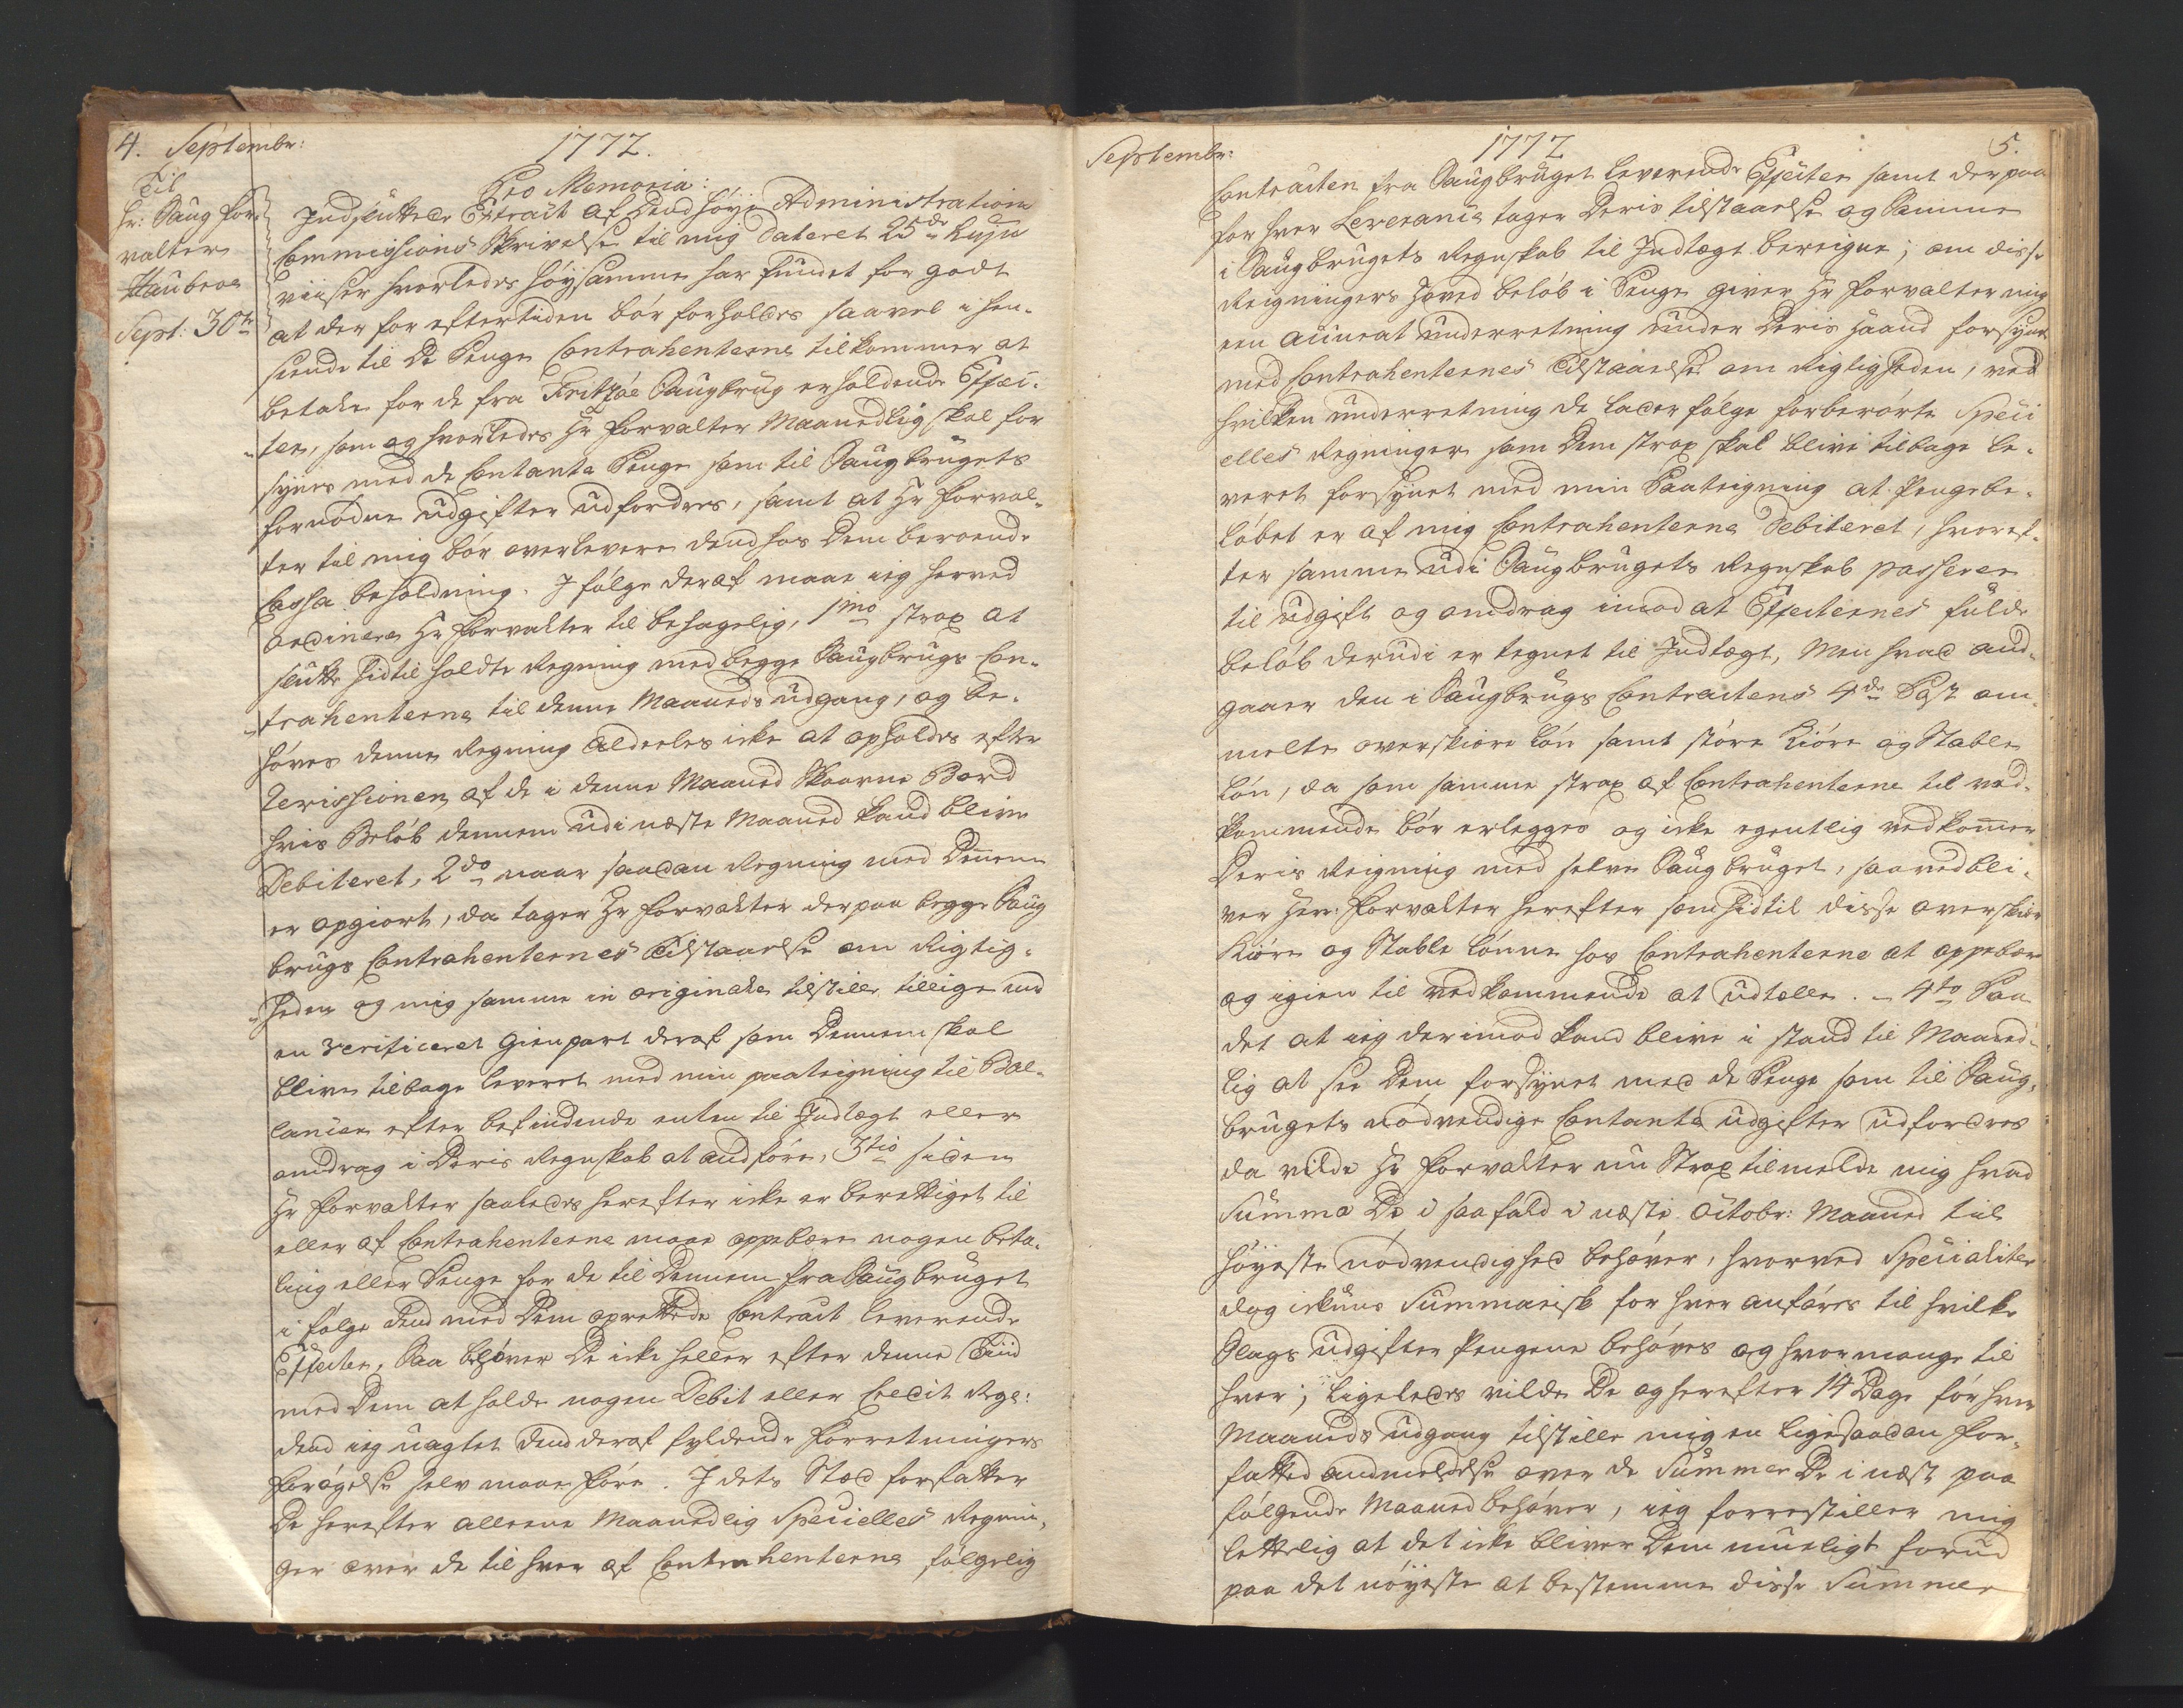 4. Septembr:
1772.
Til
Hr: Saug for-
valter
Haubroe
Sept: 30te
Pro Memoria:
Indsluttede Extract af Dend høye Administrations
Commissions Skrivelse til mig dateret 25de huju
viiser hvorledes Høysamme har fundet for godt
at der for eftertiden bør forholdes saavel i hen-
seende til De Penge Contrahenterne tilkommer at
betale for de fra Fritzøe Saugbrug erholdende Effec-
ter, som og hvorledes Hr Forvalter Maanedlig skal for
synes med de Contante Penge som til Saugbrugets
fornødne Udgifter udfordres, samt at Hr Forval-
ter til mig bør overlevere dend hos Dem beroende
Cassa beholdning. I følge deraf maae ieg herved
ordinere Hr Forvalter til behagelig, 1mo strax at
slutte hidtil holdte Regning med begge Saugbrugs Con-
trahenterne til denne Maaneds udgang, og be-
høves denne Regning alderles icke at opholdes efter
Revissionen af de i denne Maaned Skaarne Bord
hvis Beløb dennem udi næste Maaned kand blive
Debiteret, 2do naar saadan Regning med Dennem
er opgiort, da tager Hr Forvalter derpaa begge Saug
brugs Contrahenternes Tilstaaelse om Rigtig-
heden og mig samme in originale tilstiller tillige med
en verificeret Gienpart deraf som Dennem skal
blive tilbage leveret med min paateigning til Bal-
lancen efter befindende enten til Indtægt eller
omdrag i Deris Regnskab at andføre, 3tio siden
Hr Forvalter saaledes herefter icke er berettiget til
eller af Contrahenterne maae oppebære nogen beta-
ling eller Penge for de til Dennem fra Saugbruget
i følge dend med Dem oprettede Contract leverende
Effecter, Saa behøver De icke heller efter denne Tiid
med Dem at holde nogen Debit eller Credit Regn:
dend ieg uagtet dend deraf flydende Forretningers
Forøgelse selv maae føre. I dets Sted forfatter
De herefter alleene Maanedlig Specielles Regnin-
ger over de til hver af Contrahenterne følgelig
Septembr:
1772
5.
Contracten fra Saugbruget leverende Effecter samt derpaa
for hver Leverance tager Deris tilstaaelse og Samme
i Saugbrugets Regnskab til Indtægt bereigne; om disse
Reigningers Hoved beløb i Penge giver Hr Forvalter mig
een accurat Underretning under Deris Haand forsynt
med Contrahenternes Tilstaaelse om Rigtigheden, ved
hvilken Underretning de lader følge forberørte Speci
elles Regninger som Dem strax skal blive tilbage le-
veret forsynet med min Paateigning at Pengebe-
løbet er af mig Contrahenterne Debiteret, hvoref-
ter samme udi Saugbrugets Regnskab passerer
til Udgift og omdrag imod at Effecternes fulde
beløb derudi er tegnet til Indtægt, Men hvad and-
gaaer den i Saugbrugs Contractens 4de Post om
melte overskiøre Løn samt større Kiøre og Stable
Løn, da som samme strax af Contrahenterne til ved-
kommende bør erlegges og icke egentlig vedkommer
Deris Reigning med selve Saugbruget, saa vedbli-
ver Herr Forvalter herefter som hidtil disse overskiør
Kiøre og Stable Lønne hos Contrahenterne at oppebær
og igien til vedkommende at udtælle. - 4to Paa
det at ieg derimod kand blive i stand til Maaned-
lig at see Dem forsynet med de Penge som til Saug-
brugets nødvendige Contante Udgifter udfordres
da vilde Hr Forvalter nu Strax tilmelde mig hvad
Summa De i saa fald i næste Octobr: Maaned til
høyeste nødvendighed behøver, hvorved Specialiter
dog ickuns Summarisk for hver anføres til hvilke
Slags Udgifter Pengene behøves og hvormange til
hver; Ligeledes vilde De og herefter 14 Dage før hver
Maaneds Udgang tilstille mig en ligesaadan for-
fatted andmeldelse over de Summer De i næst paa
følgende Maaned behøver, ieg forrestiller mig
lettelig at det icke bliver Dem mueligt forud
paa det nøyeste at bestemme disse Summer